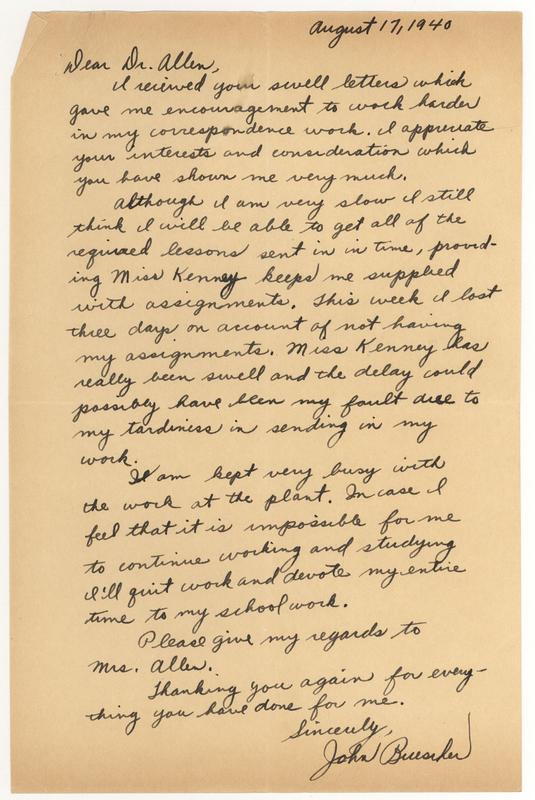 August 17, 1940
Dear Dr. Allen,
I reieved your swell letters which
gave me encouragement to work harder
in my correspondence work. I appreciate
your interests and consideration which
you have shown me very much.
Although I am very slow I still
think I will be able to get all of the
required lessons sent in in time, provid-
ing Miss Kenney keeps me supplied
with assignments. This week I lost
three days on account of not having
my assignments. Miss Kenney has
really been swell and the delay could
possibly have been my fault due to
my tardiness in sending in my
work.
I am kept very busy with
the work at the plant. In case I
feel that it is impossible for me
to continue working and studying
I'll quit work and devote my entire
time to my school work.
Please give my regards to
Mrs. Allen.
Thanking you again for every-
thing you have done for me.
Sincerly,
John Buescher